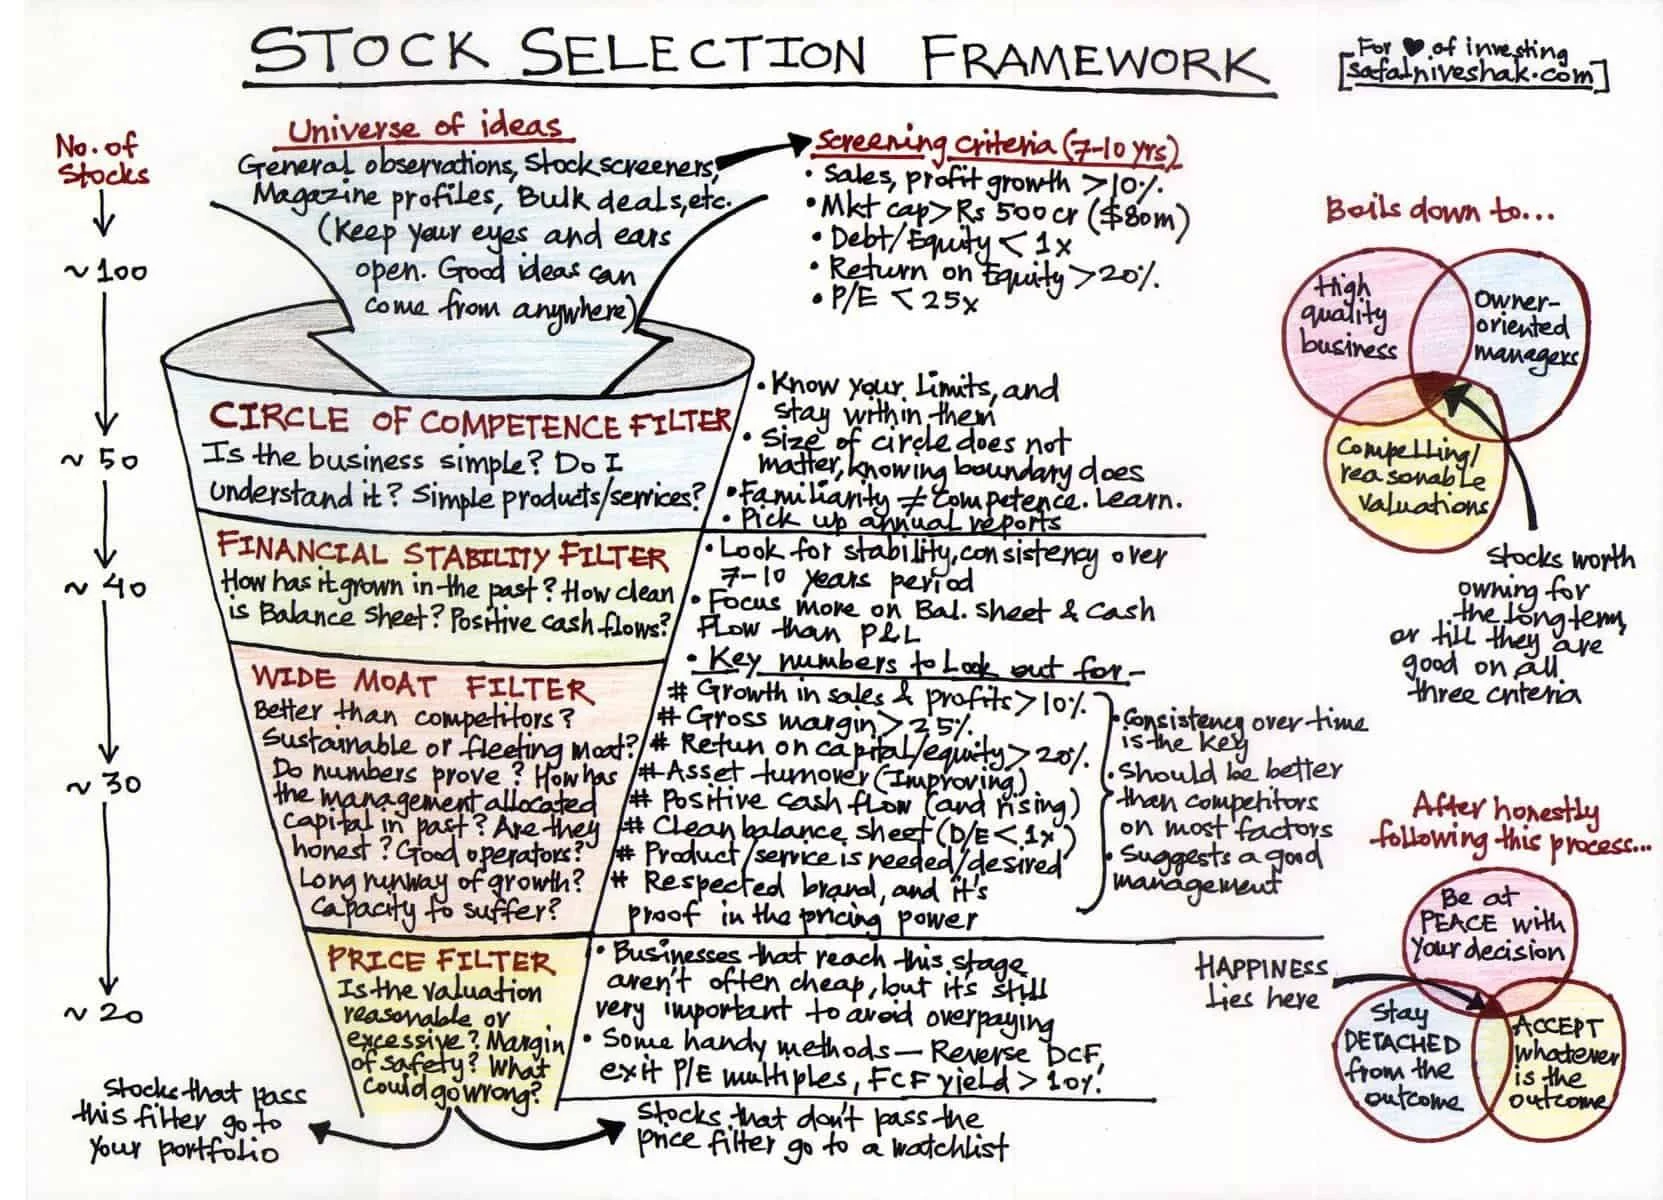 STOCK SELECTION FRAMEWORK
For ♥ of investing
[safalniveshak.com]
No. of
Stocks
~ 100
~ 50
~ 40
~ 30
~ 20
Universe of ideas
General observations, Stock screeners,
Magazine profiles, Bulk deals, etc.
(Keep your eyes and ears
open. Good ideas can
come from anywhere)
Screening criteria (7-10 yrs)
• Sales, profit growth > 10%
• Mkt cap > Rs 500 cr ($80m)
• Debt/Equity < 1x
• Return on Equity > 20%
• P/E < 25x
CIRCLE OF COMPETENCE FILTER
Is the business simple? Do I
understand it? Simple products/services?
• Know your limits, and
stay within them
• Size of circle does not
matter, knowing boundary does
• Familiarity ≠ Competence. Learn.
• Pick up annual reports
FINANCIAL STABILITY FILTER
How has it grown in the past? How clean
is Balance Sheet? Positive cash flows?
• Look for stability, consistency over
7-10 years period
• Focus more on Bal. Sheet & Cash
Flow than P&L
• Key numbers to Look out for-
WIDE MOAT FILTER
Better than competitors?
Sustainable or fleeting moat?
Do numbers prove? How has
the management allocated
capital in past? Are they
honest? Good operators?
Long runway of growth?
Capacity to suffer?
# Growth in sales & profits > 10%
# Gross margin > 25%
# Retun on capital/equity > 20%
# Asset turnover (Improving)
# Positive cash flow (and rising)
# Clean balance sheet (D/E < 1x)
# Product/service is needed/desired
# Respected brand, and it's
proof in the pricing power
• Consistency over time
is the key
• Should be better
than competitors
on most factors
• Suggests a good
management
PRICE FILTER
Is the valuation
reasonable or
excessive? Margin
of safety? What
could go wrong?
• Businesses that reach this stage
aren't often cheap, but it's still
very important to avoid overpaying
• Some handy methods — Reverse DCF,
exit P/E multiples, FCF yield > 10%
Stocks that pass
this filter go to
your portfolio
Stocks that don't pass the
price filter go to a watchlist
Boils down to...
High
quality
business
Owner-
oriented
managers
Compelling/
reasonable
valuations
Stocks worth
owning for
the long term,
or till they are
good on all
three criteria
After honestly
following this process...
Be at
PEACE with
your decision
HAPPINESS
Lies here
Stay
DETACHED
from the
outcome
ACCEPT
whatever
is the
outcome